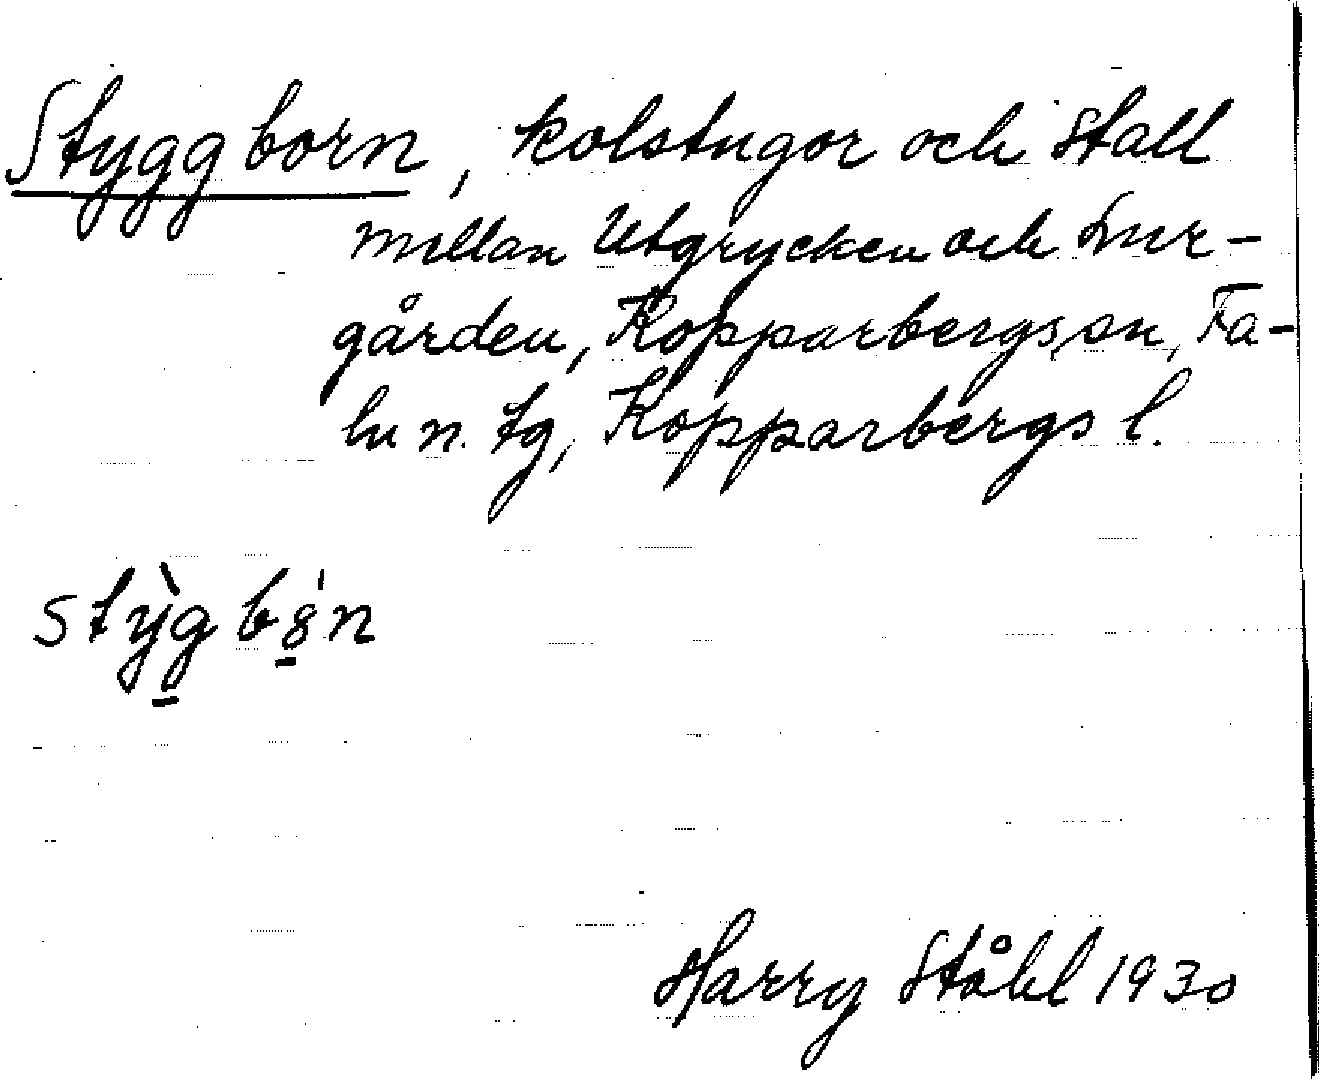 Styggborn, kolstugor och stall
mellan Utgrycken och Lur-
gården, Kopparbergs sn, Fa-
lu n. tg, Kopparbergs l.
Harry Ståhl 1930